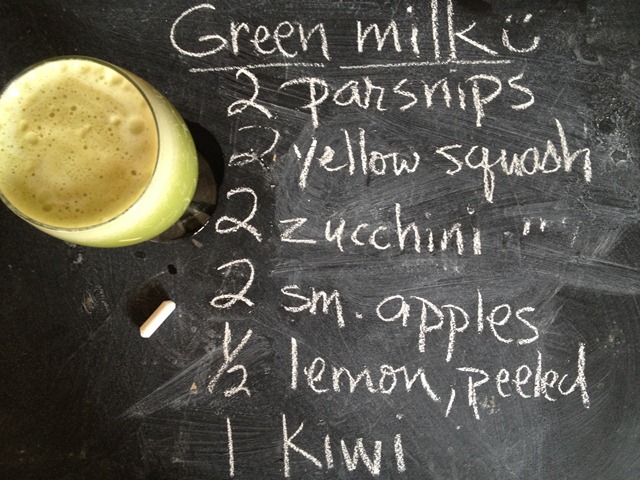 Green milk
2 parsnips
2 yellow squash
2 zucchini
2 sm. apples
1/2 lemon, peeled
1 Kiwi